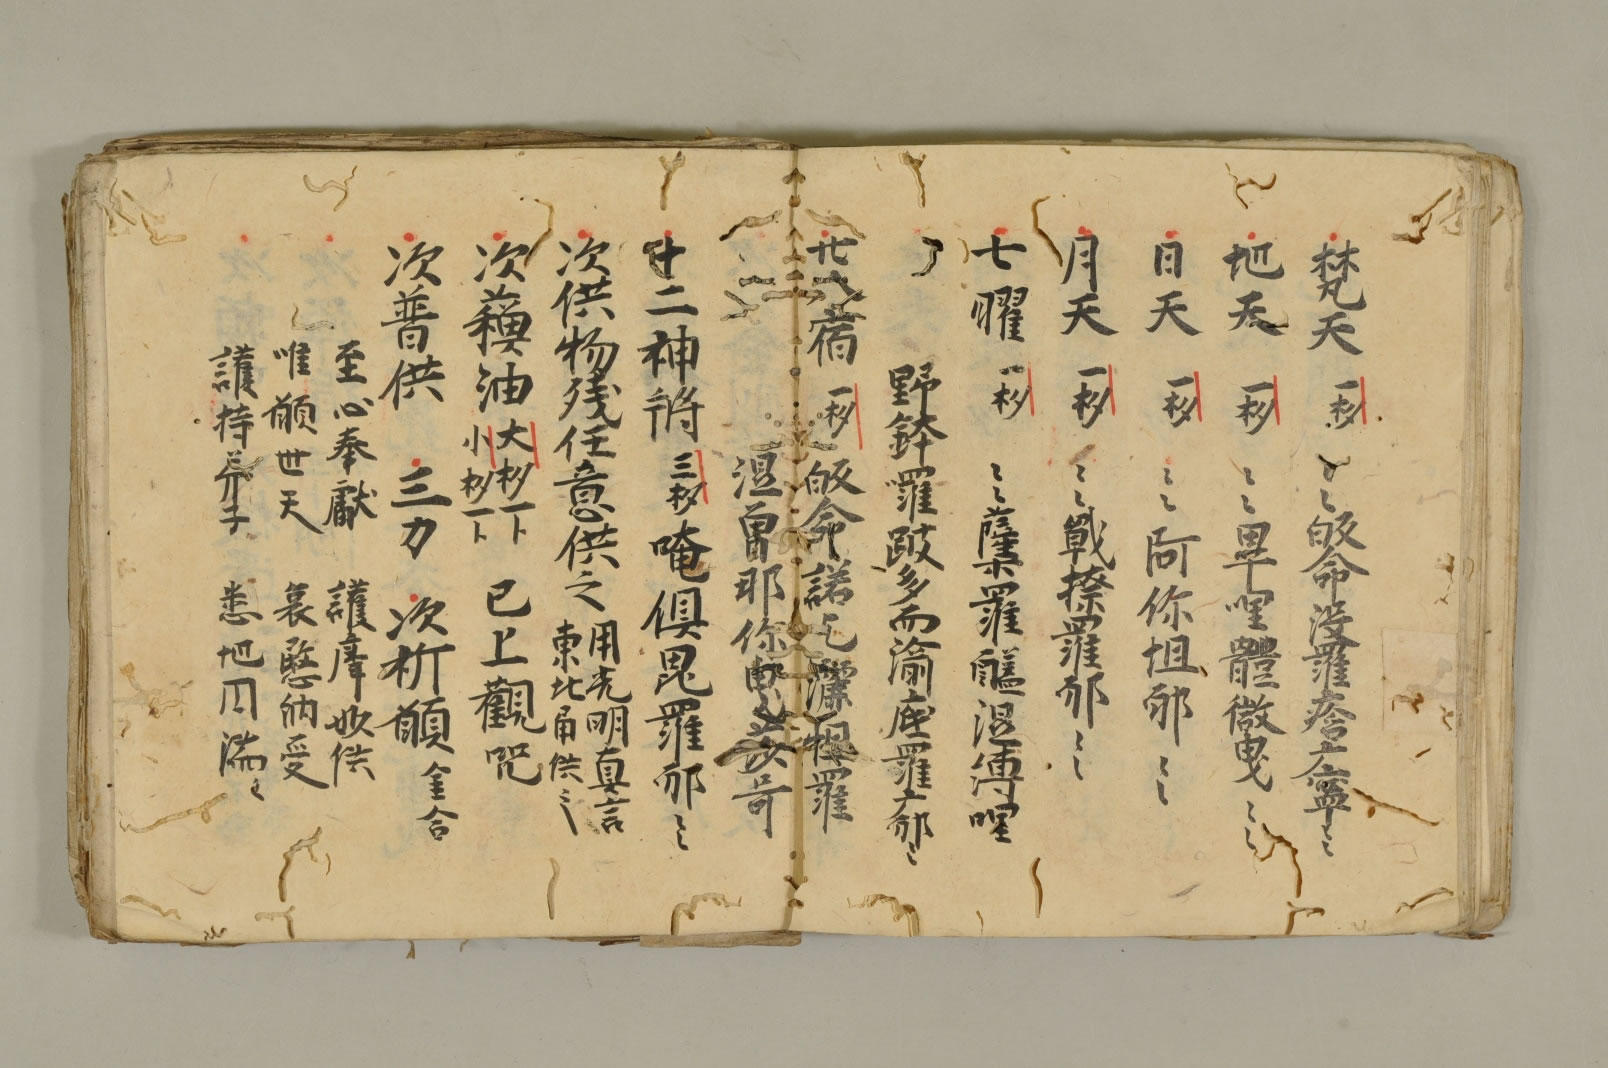 梵天 一杓 〻〻皈命没羅痝广寧〻〻
地天 一杓 〻〻畢哩體微曳〻〻
日天 一杓 〻〻阿你怛耶〻〻
月天 一杓 〻〻戰捺羅耶〻〻
七曜 一杓 〻〻薩羅醯湿嚩哩
野鉢羅跛多而渝底羅广耶〻〻
廿八宿 一杓 皈命諾乞灑怛羅
涅曽耶你
十二神將 三杓 唵俱毘羅耶〻〻
次供物残任意供之 用光明真言
東北角供之
次蘓油 大杓一下 已上觀咒
小杓一下
次普供 三力 次祈願 金合
至心奉獻 護摩妙供
唯願世天 哀愍納受
護持弟子 悉地円満〻